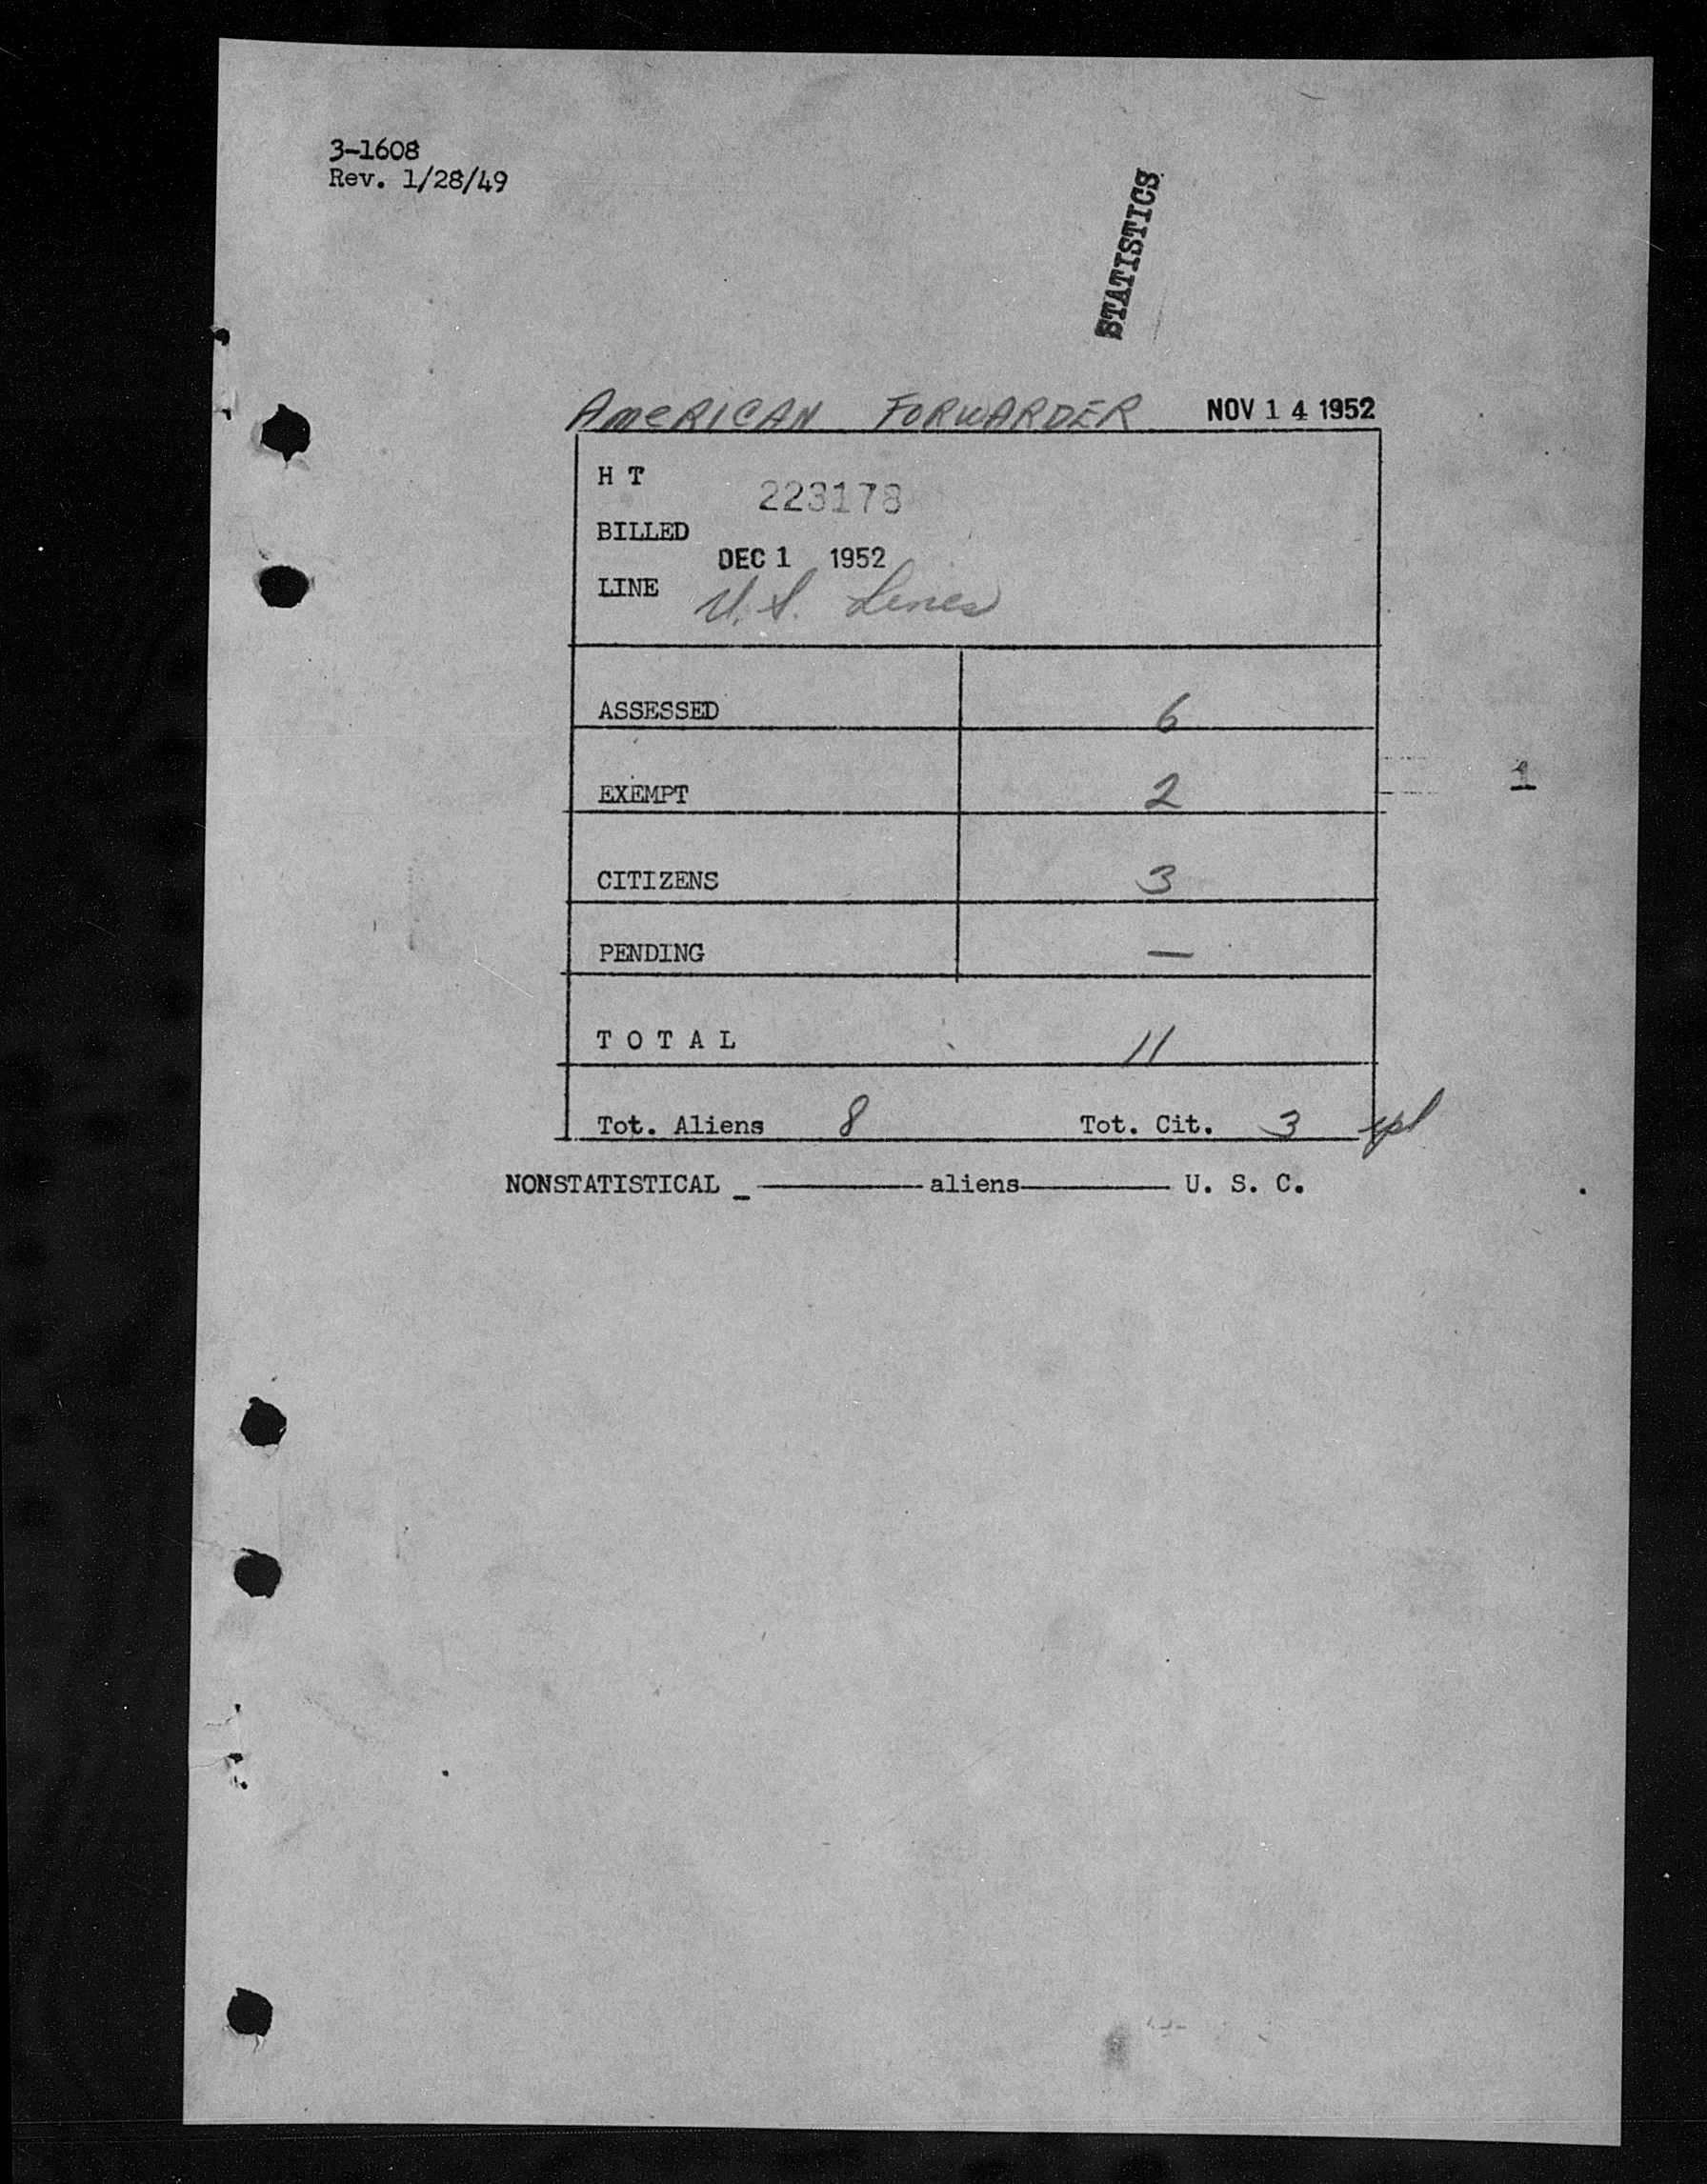 3-1608
Rev. 1/28/49
STATISTICS
AMERICAN FORWARDER NOV 14 1952
H T
223178
BILLED
DEC 1 1952
LINE U.S. Lines
ASSESSED 6
EXEMPT 2
1
CITIZENS 3
PENDING —
T O T A L 11
Tot. Aliens 8 Tot. Cit. 3
NONSTATISTICAL _ ———— aliens ———— U. S. C.